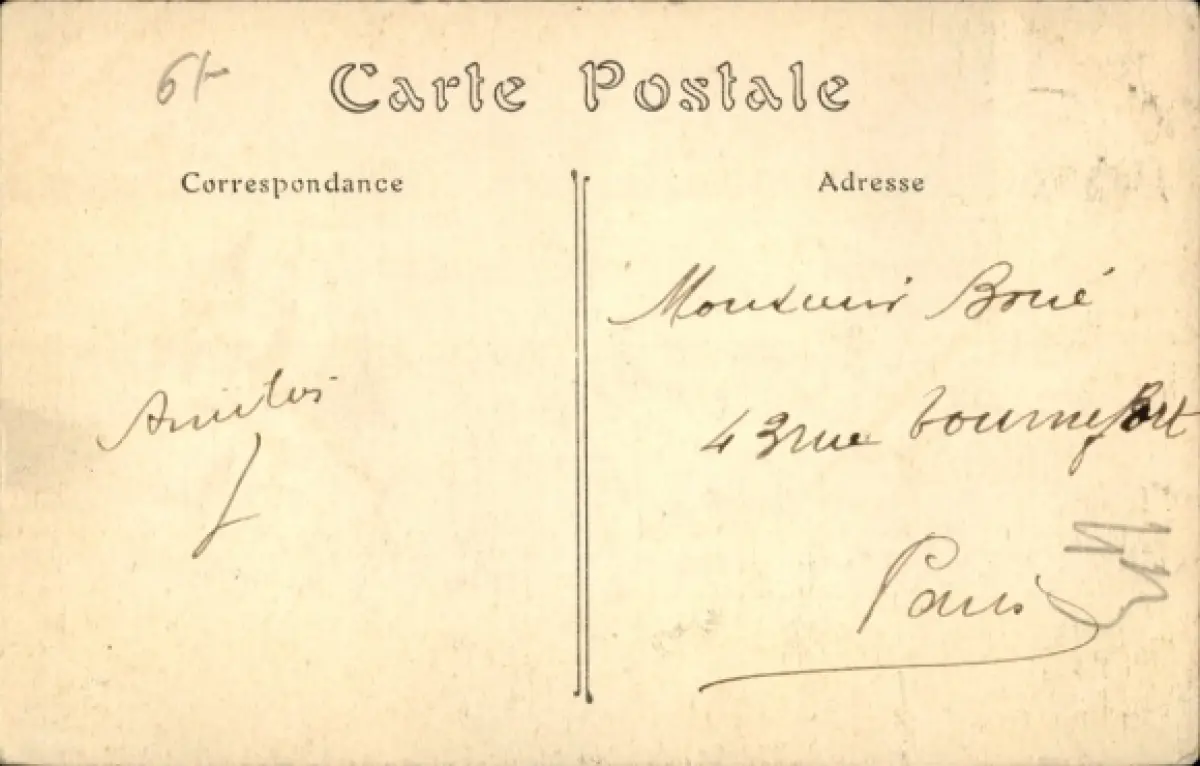 6f
Carte Postale
Correspondance
Adresse
Monsieur Boué
43 rue Tournefort
Amitiés
Paris